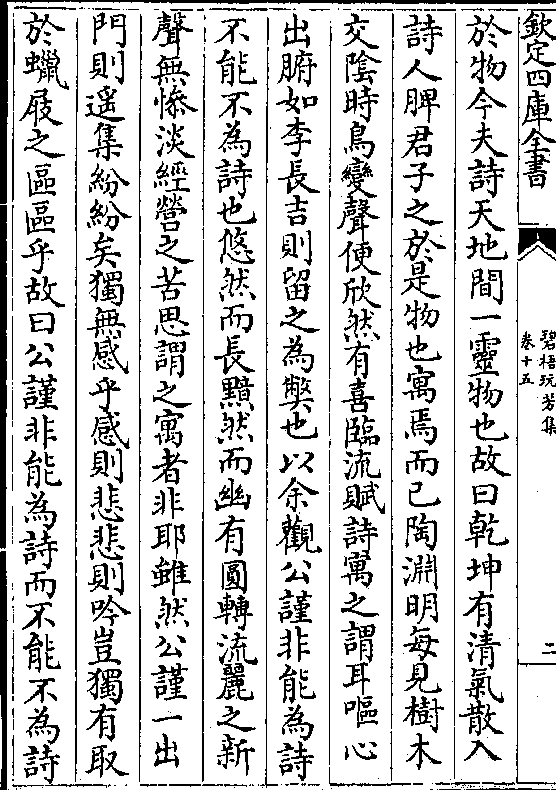 欽定四庫全書
碧梧玩芳集
卷十五
二
於物今夫詩天地間一靈物也故曰乾坤有清氣散入
詩人脾君子之於是物也寓焉而已陶淵明每見樹木
交陰時鳥變聲便欣然有喜臨流賦詩寓之謂耳嘔心
出腑如李長吉則留之為獘也以余觀公謹非能為詩
不能不為詩也悠然而長黯然而幽有圓轉流麗之新
聲無慘淡經營之苦思謂之寓者非耶雖然公謹一出
門則遥集紛紛矣獨無感乎感則悲悲則吟豈獨有取
於蠟屐之區區乎故曰公謹非能為詩而不能不為詩